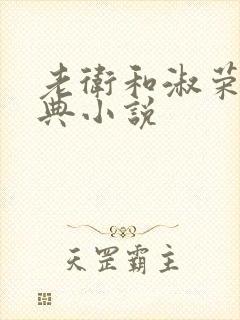 老衛和淑荣
典小說
天罡霸主